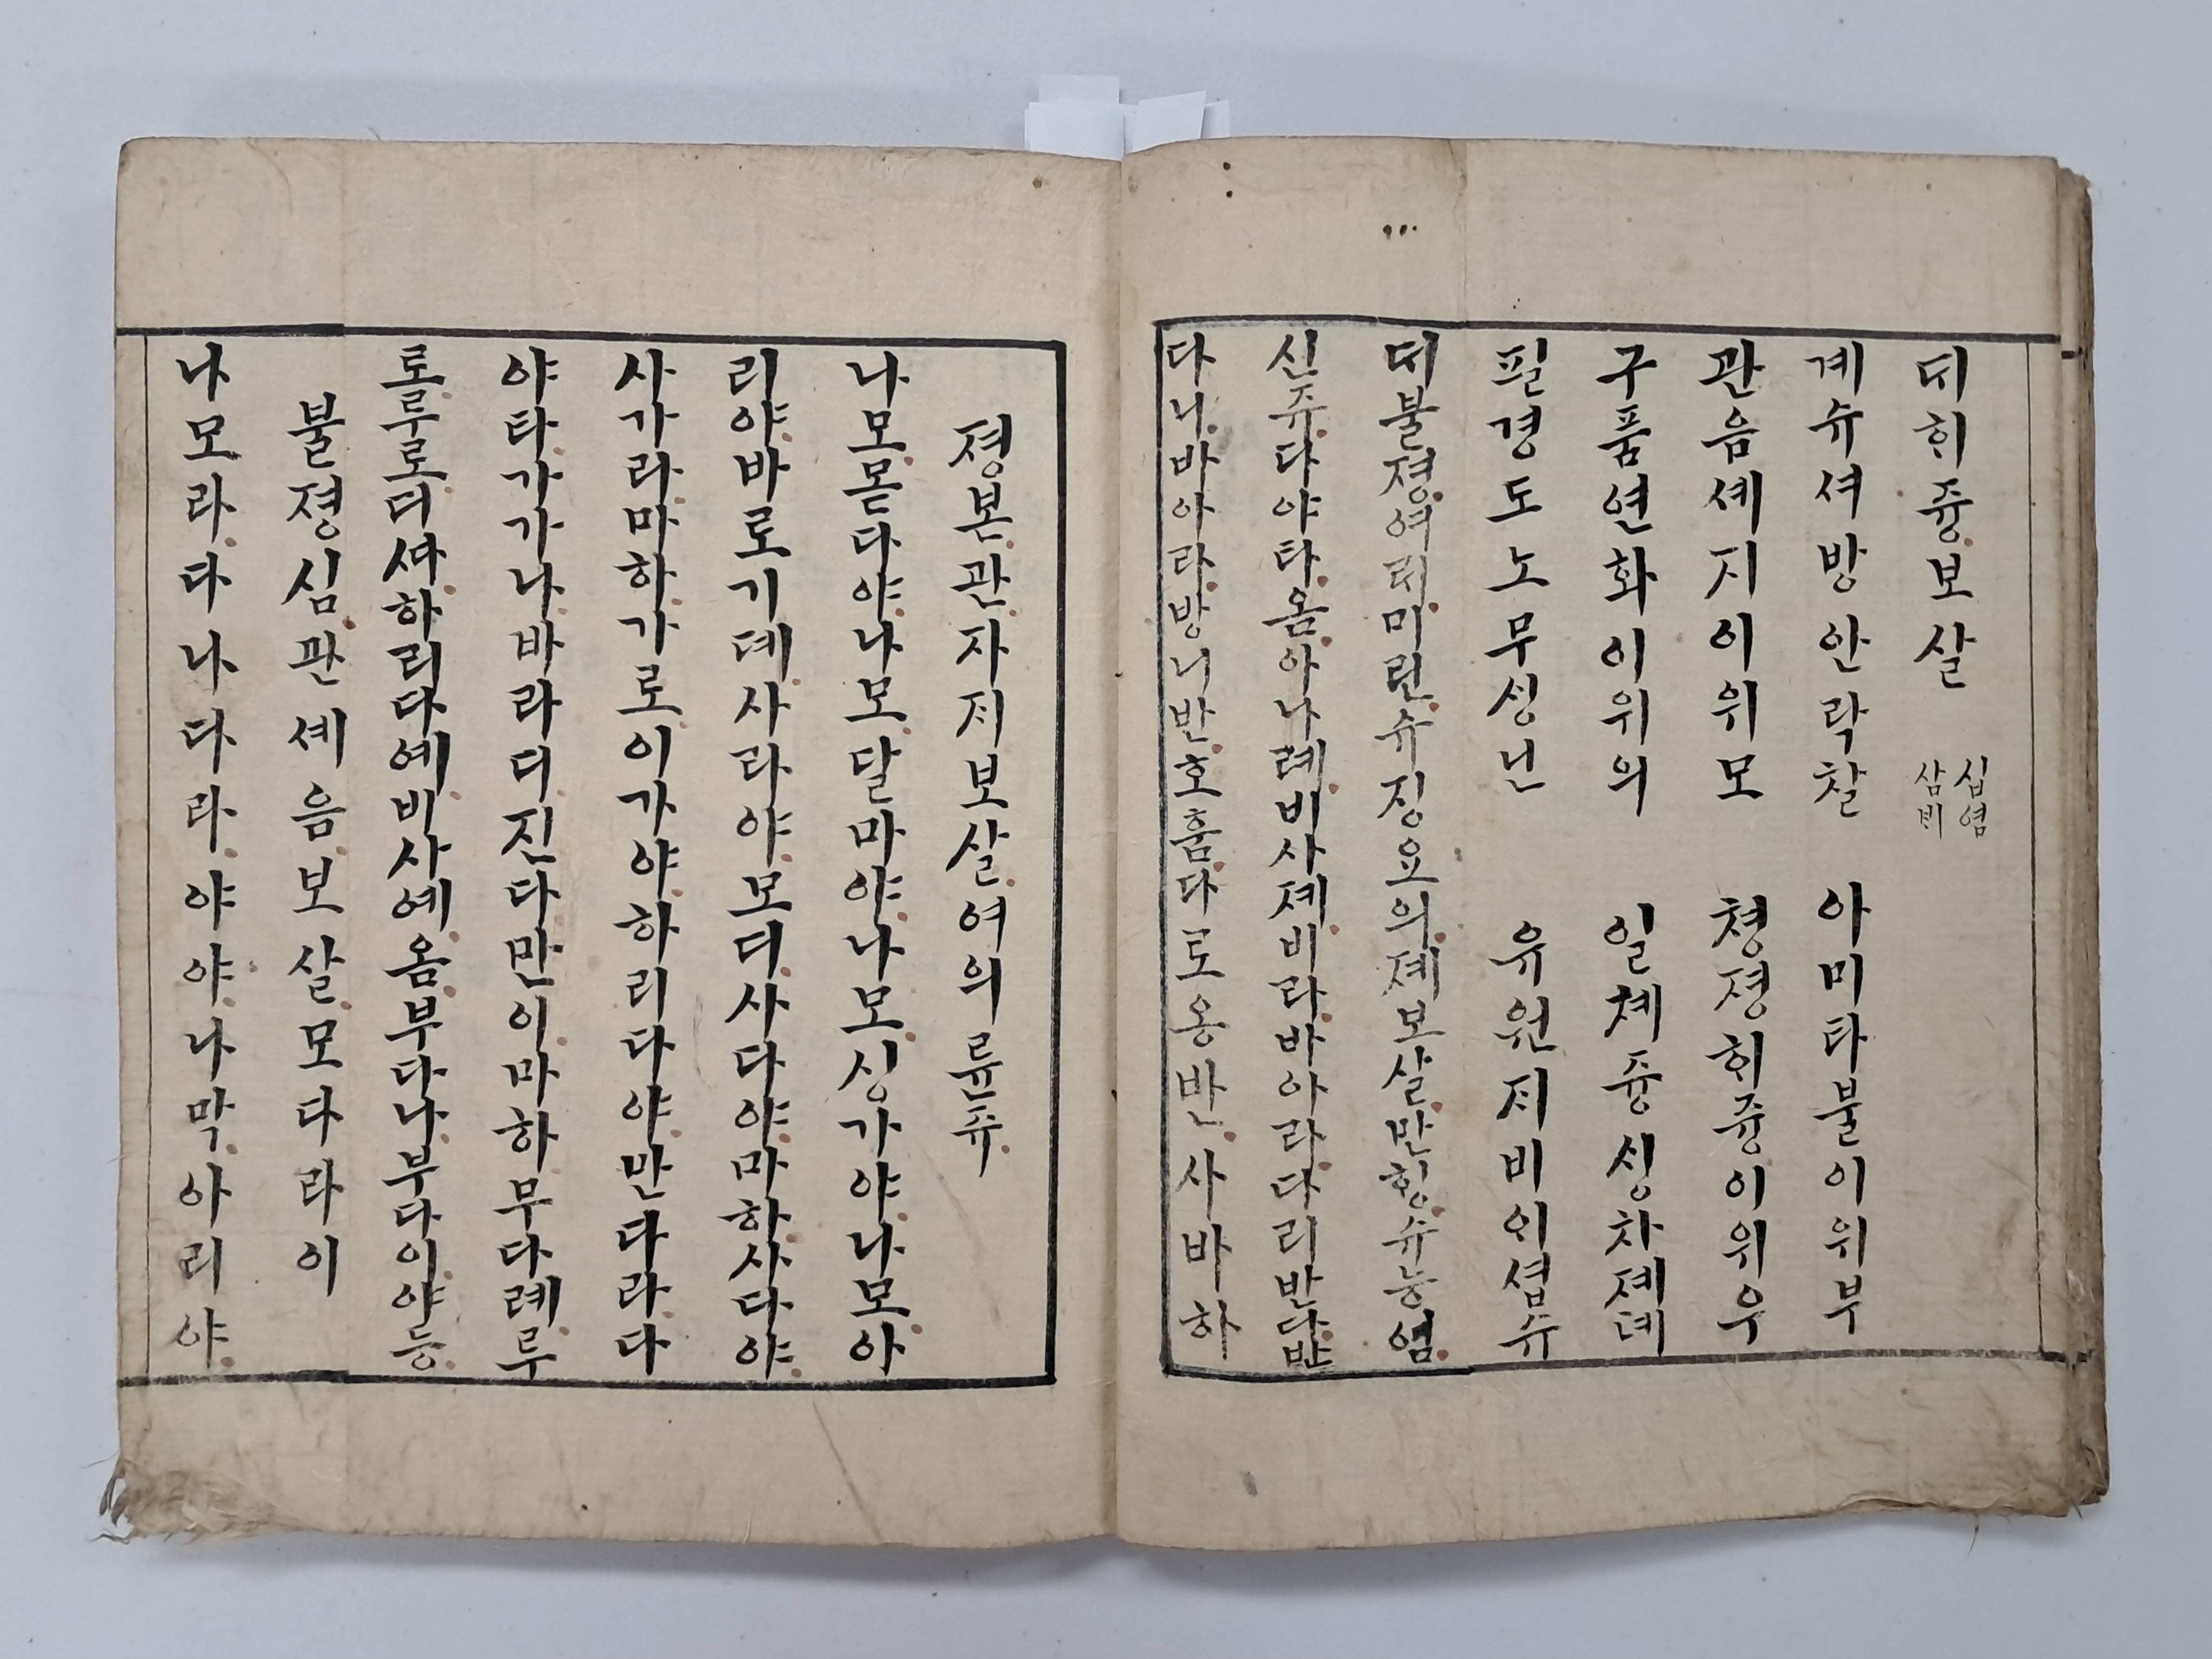 ᄃᆡᄒᆡ즁보살 십염 삼ᄇᆡ
계슈셔방안락찰 아미타불이위부
관음셰지이위모 쳥졍ᄒᆡ즁이위우
구품연화이위의 일쳬즁ᄉᆡᆼ차졔뎨
필경도노무ᄉᆡᆼ닌 유원ᄌᆡ비ᄋᆡ셥슈
ᄃᆡ불졍여ᄅᆡ미린슈징요의졔보살만ᄒᆡᆼ슈능염
신쥬다야타옴아나례비사졔비라바아라다리반다반
다니바아라방니반호훔다로옹반사바하
졍본관자ᄌᆡ보살여의륜쥬
나모몯다야나모달마야나모싱가야나모아
리야바로기뎨사라야모디사다야마하사다야
사가라마하가로이가야하리다야만다라다
야타가가나바라디진다만이마하무다례루
로루로디싸하리다예비사예옴부다나부다이야등
불졍심관셰음보살모다라이
나모라다나다라야야나막아리야